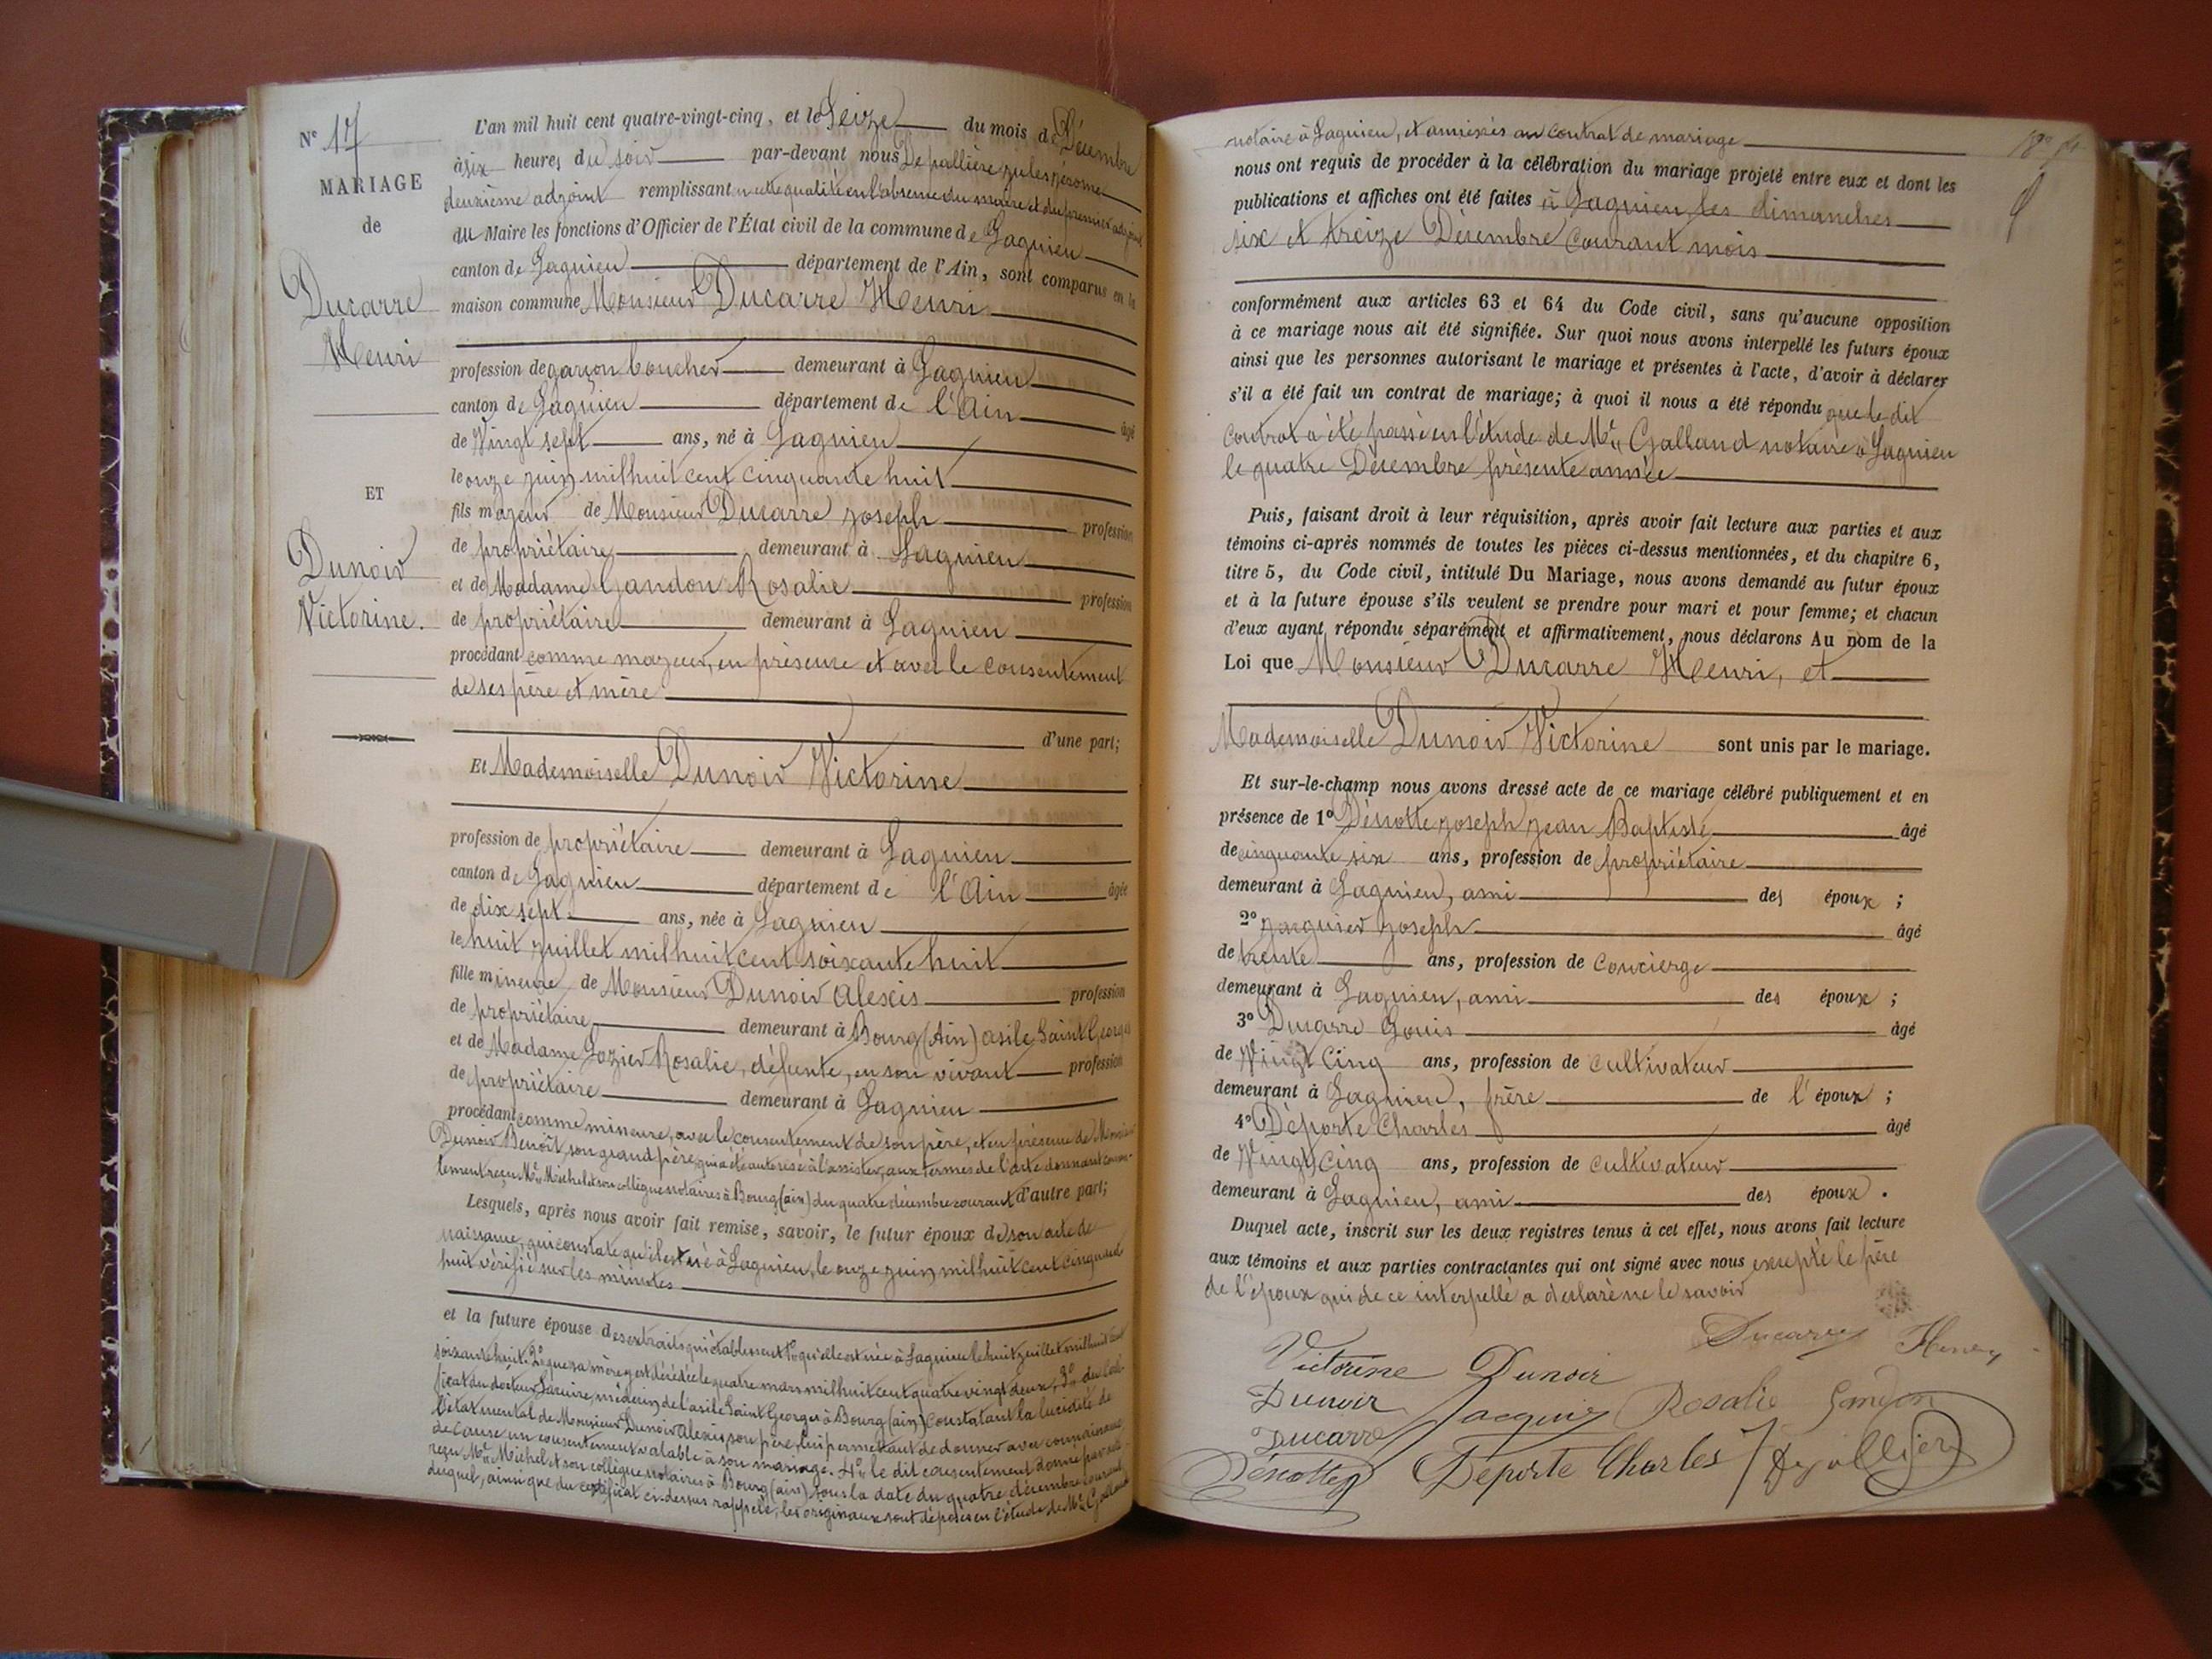 N° 17
MARIAGE
de
Ducarre
Henri
ET
Dunoir
Victorine.
L'an mil huit cent quatre-vingt-cinq, et le Seize du mois de Décembre
à six heures du soir par-devant nous Depallière jules jérôme
deuxième adjoint remplissant en cette qualité en l'absence du maire et du premier adjoint
du Maire les fonctions d'Officier de l'État civil de la commune de Lagnieu
canton de Lagnieu département de l'Ain, sont comparus en la
maison commune Monsieur Ducarre Henri
profession de garçon boucher demeurant à Lagnieu
canton de Lagnieu département de l'Ain âgé
de Vingt sept ans, né à Lagnieu
le onze juin mil huit cent cinquante huit
fils majeur de Monsieur Ducarre joseph profession
de propriétaire demeurant à Lagnieu
et de Madame Gandon Rosalie profession
de propriétaire demeurant à Lagnieu
procédant comme majeur, en présence et avec le consentement
de ses père et mère
d'une part;
Et Mademoiselle Dunoir Victorine
profession de propriétaire demeurant à Lagnieu
canton de Lagnieu département de l'Ain âgée
de dix sept ans, née à Lagnieu
le huit juillet mil huit cent soixante huit
fille mineure de Monsieur Dunoir Alexis profession
de propriétaire demeurant à Bourg (Ain) asile Saint Georges
et de Madame Lozier Rosalie, défunte, en son vivant profession
de propriétaire demeurant à Lagnieu
procédant comme mineure, avec le consentement de son père, et en présence de Monsieur
Dunoir Benoît, son grand père, qui a été autorisé à l'assister, aux termes de l'acte donnant consen-
tement reçu Me Michel et son collègue notaires à Bourg (ain) du quatre décembre courant d'autre part;
Lesquels, après nous avoir fait remise, savoir, le futur époux de son acte de
naissance, qui constate qu'il est né à Lagnieu, le onze juin mil huit cent cinquante
huit vérifié sur les minutes
et la future épouse des extraits qui établissent 1° qu'elle est née à Lagnieu le huit juillet mil huit cent
soixante huit. 2° que sa mère y est décédée le quatre mars mil huit cent quatre vingt deux, 3° du certi-
ficat du docteur médecin de l'asile Saint Georges à Bourg (ain) constatant la lucidité de
l'état mental de Monsieur Dunoir Alexis, son père, lui permettant de donner avec connaissance
de cause un consentement valable à son mariage. 4° le dit consentement donné par acte
reçu Me Michel et son collègue notaires à Bourg (ain) sous la date du quatre décembre courant,
duquel, ainsi que du certificat ci-dessus rappelé, les originaux sont déposés en l'étude de Me Galland
notaire à Lagnieu, et annexés au contrat de mariage
nous ont requis de procéder à la célébration du mariage projeté entre eux et dont les
publications et affiches ont été faites à Lagnieu les dimanches
six et treize Décembre courant mois
conformément aux articles 63 et 64 du Code civil, sans qu'aucune opposition
à ce mariage nous ait été signifiée. Sur quoi nous avons interpellé les futurs époux
ainsi que les personnes autorisant le mariage et présentes à l'acte, d'avoir à déclarer
s'il a été fait un contrat de mariage; à quoi il nous a été répondu que le dit
contrat a été passé en l'étude de Me Galland notaire à Lagnieu
le quatre Décembre présente année
Puis, faisant droit à leur réquisition, après avoir fait lecture aux parties et aux
témoins ci-après nommés de toutes les pièces ci-dessus mentionnées, et du chapitre 6,
titre 5, du Code civil, intitulé Du Mariage, nous avons demandé au futur époux
et à la future épouse s'ils veulent se prendre pour mari et pour femme; et chacun
d'eux ayant répondu séparément et affirmativement, nous déclarons Au nom de la
Loi que Monsieur Ducarre Henri, et
Mademoiselle Dunoir Victorine sont unis par le mariage.
Et sur-le-champ nous avons dressé acte de ce mariage célébré publiquement et en
présence de 1° Dénotte joseph jean Baptiste âgé
de cinquante six ans, profession de propriétaire
demeurant à Lagnieu, ami des époux ;
2° jacquier joseph âgé
de trente ans, profession de concierge
demeurant à Lagnieu, ami des époux ;
3° Ducarre Louis âgé
de Vingt cinq ans, profession de cultivateur
demeurant à Lagnieu, frère de l'époux ;
4° Déporte Charles âgé
de Vingt cinq ans, profession de cultivateur
demeurant à Lagnieu, ami des époux.
Duquel acte, inscrit sur les deux registres tenus à cet effet, nous avons fait lecture
aux témoins et aux parties contractantes qui ont signé avec nous excepté le père
de l'époux qui de ce interpellé a déclaré ne le savoir
Ducarre Henry
Victorine Dunoir
Dunoir Jacquier Rosalie Gandon
Ducarre
Dénotte Déporte Charles